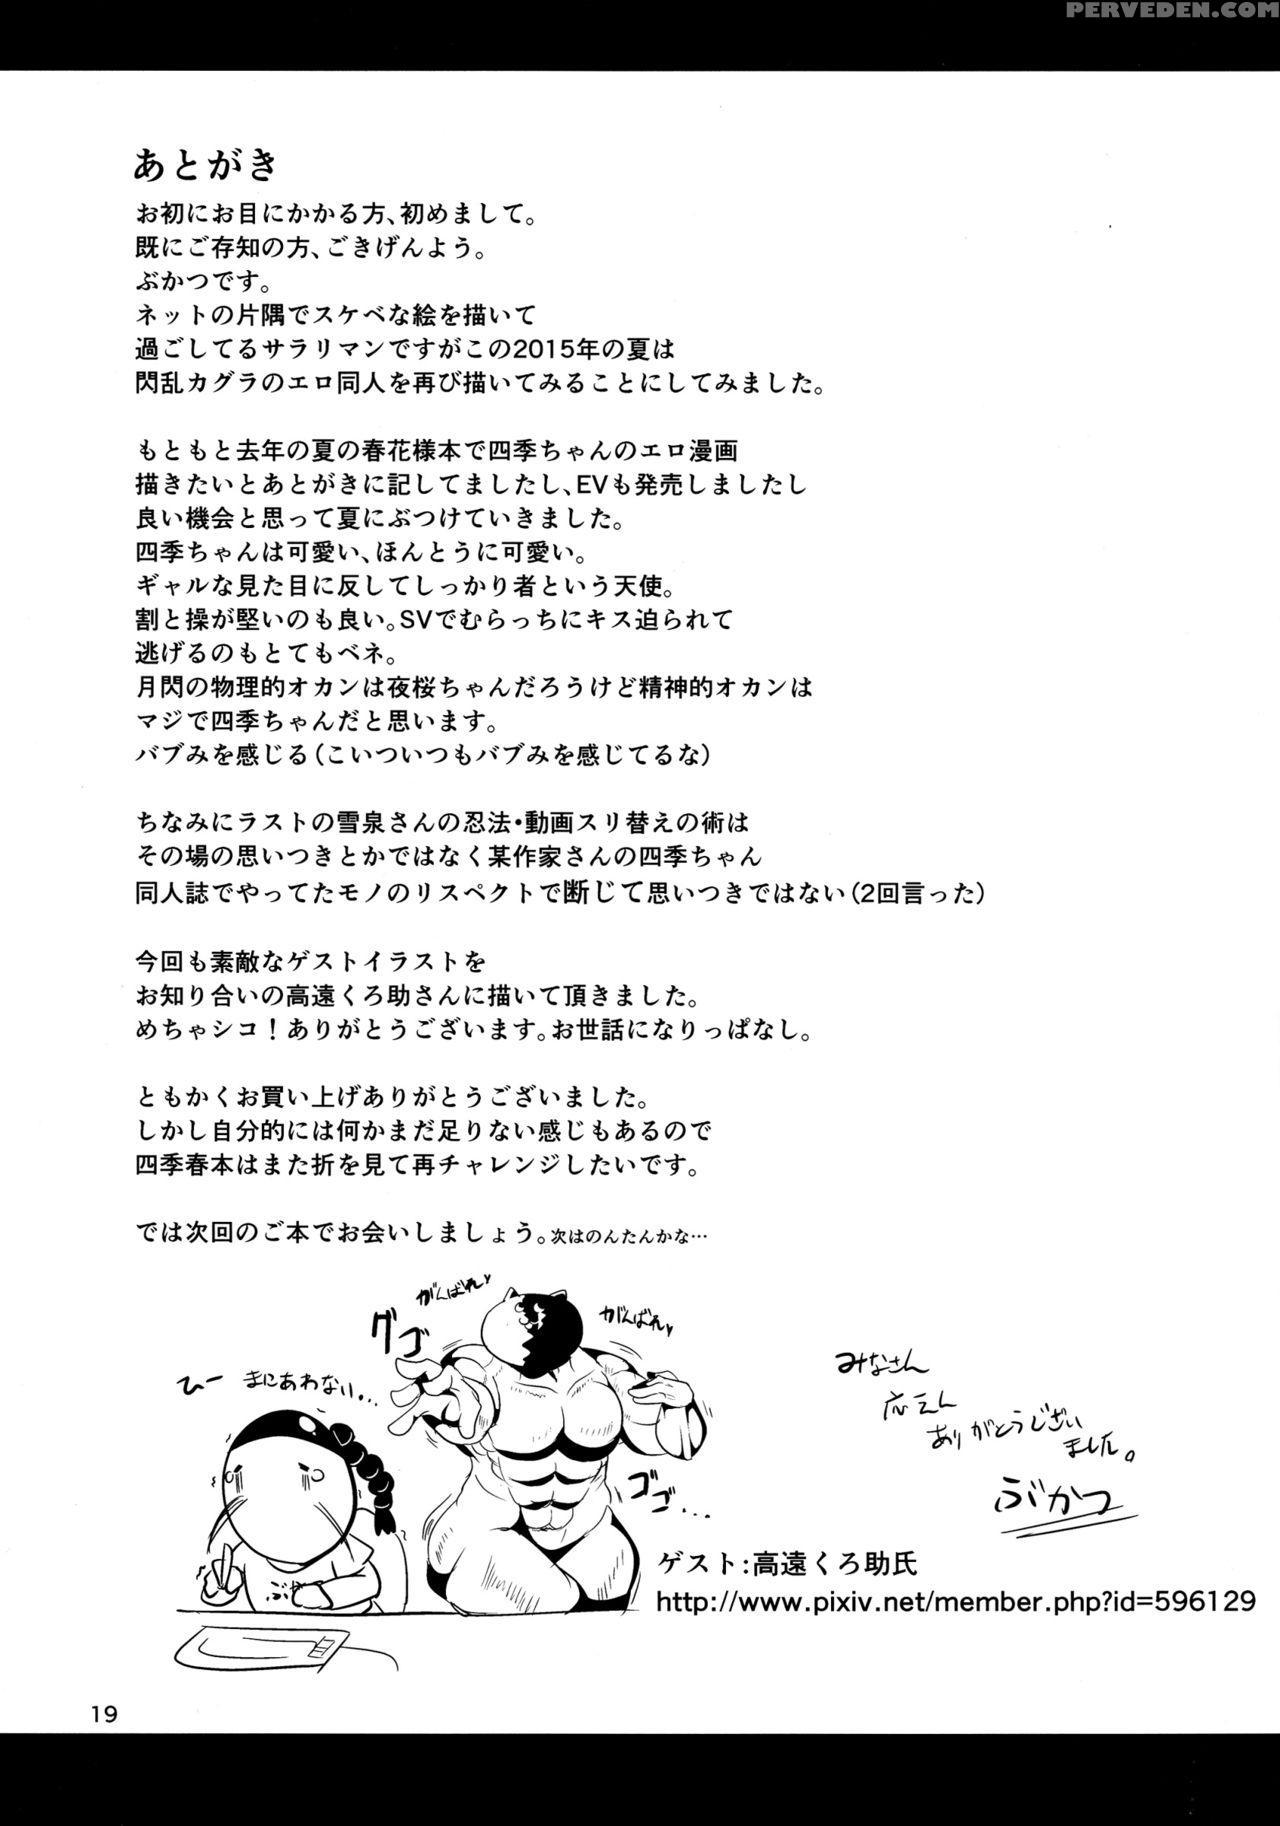 PERVEDEN.COM
あとがき
お初にお目にかかる方、初めまして。
既にご存知の方、ごきげんよう。
ぶかつです。
ネットの片隅でスケベな絵を描いて
過ごしてるサラリマンですがこの2015年の夏は
閃乱カグラのエロ同人を再び描いてみることにしてみました。
もともと去年の夏の春花様本で四季ちゃんのエロ漫画
描きたいとあとがきに記してましたし、EVも発売しましたし
良い機会と思って夏にぶつけていきました。
四季ちゃんは可愛い、ほんとうに可愛い。
ギャルな見た目に反してしっかり者という天使。
割と操が堅いのも良い。SVでむらっちにキス迫られて
逃げるのもとてもベネ。
月閃の物理的オカンは夜桜ちゃんだろうけど精神的オカンは
マジで四季ちゃんだと思います。
バブみを感じる(こいついつもバブみを感じてるな)
ちなみにラストの雪泉さんの忍法・動画スリ替えの術は
その場の思いつきとかではなく某作家さんの四季ちゃん
同人誌でやってたモノのリスペクトで断じて思いつきではない(2回言った)
今回も素敵なゲストイラストを
お知り合いの高遠くろ助さんに描いて頂きました。
めちゃシコ！ありがとうございます。お世話になりっぱなし。
ともかくお買い上げありがとうございました。
しかし自分的には何かまだ足りない感じもあるので
四季春本はまた折を見て再チャレンジしたいです。
では次回のご本でお会いしましょう。次はのんたんかな…
がんばれ♥
がんばれ♥
グゴゴ
ひー まにあわない...
ゴゴ...
ぶか
みなさん
応えん
ありがとうござい
ました。
ぶかつ
ゲスト:高遠くろ助氏
http://www.pixiv.net/member.php?id=596129
19